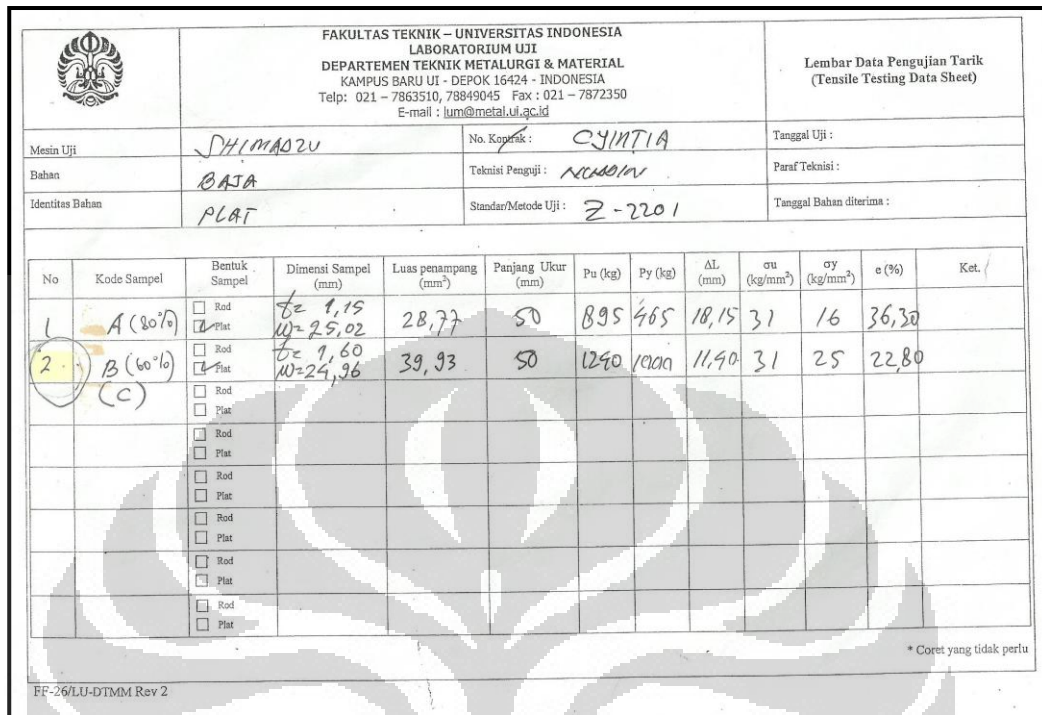 FAKULTAS TEKNIK – UNIVERSITAS INDONESIA
LABORATORIUM UJI
DEPARTEMEN TEKNIK METALURGI & MATERIAL
KAMPUS BARU UI - DEPOK 16424 - INDONESIA
Telp: 021 – 7863510, 78849045 Fax : 021 – 7872350
E-mail : lum@metal.ui.ac.id
Lembar Data Pengujian Tarik
(Tensile Testing Data Sheet)
Mesin Uji SHIMADZU No. Kontrak : CYINTIA Tanggal Uji :
Bahan BAJA Teknisi Penguji : Paraf Teknisi :
Identitas Bahan PLAT Standar/Metode Uji : Z - 2201 Tanggal Bahan diterima :
No Kode Sampel Bentuk Sampel Dimensi Sampel (mm) Luas penampang (mm²) Panjang Ukur (mm) Pu (kg) Py (kg) ΔL (mm) σu (kg/mm²) σy (kg/mm²) e (%) Ket.
Rod t= 1,15
1 A (80%) Plat W=25,02 28,77 50 895 465 18,15 31 16 36,30
Rod t= 1,60
2 B (60%) Plat W=24,96 39,93 50 1240 11,40 31 25 22,80
(C) Rod
Plat
Rod
Plat
Rod
Plat
Rod
Plat
Rod
Plat
Rod
Plat
* Coret yang tidak perlu
FF-26/LU-DTMM Rev 2